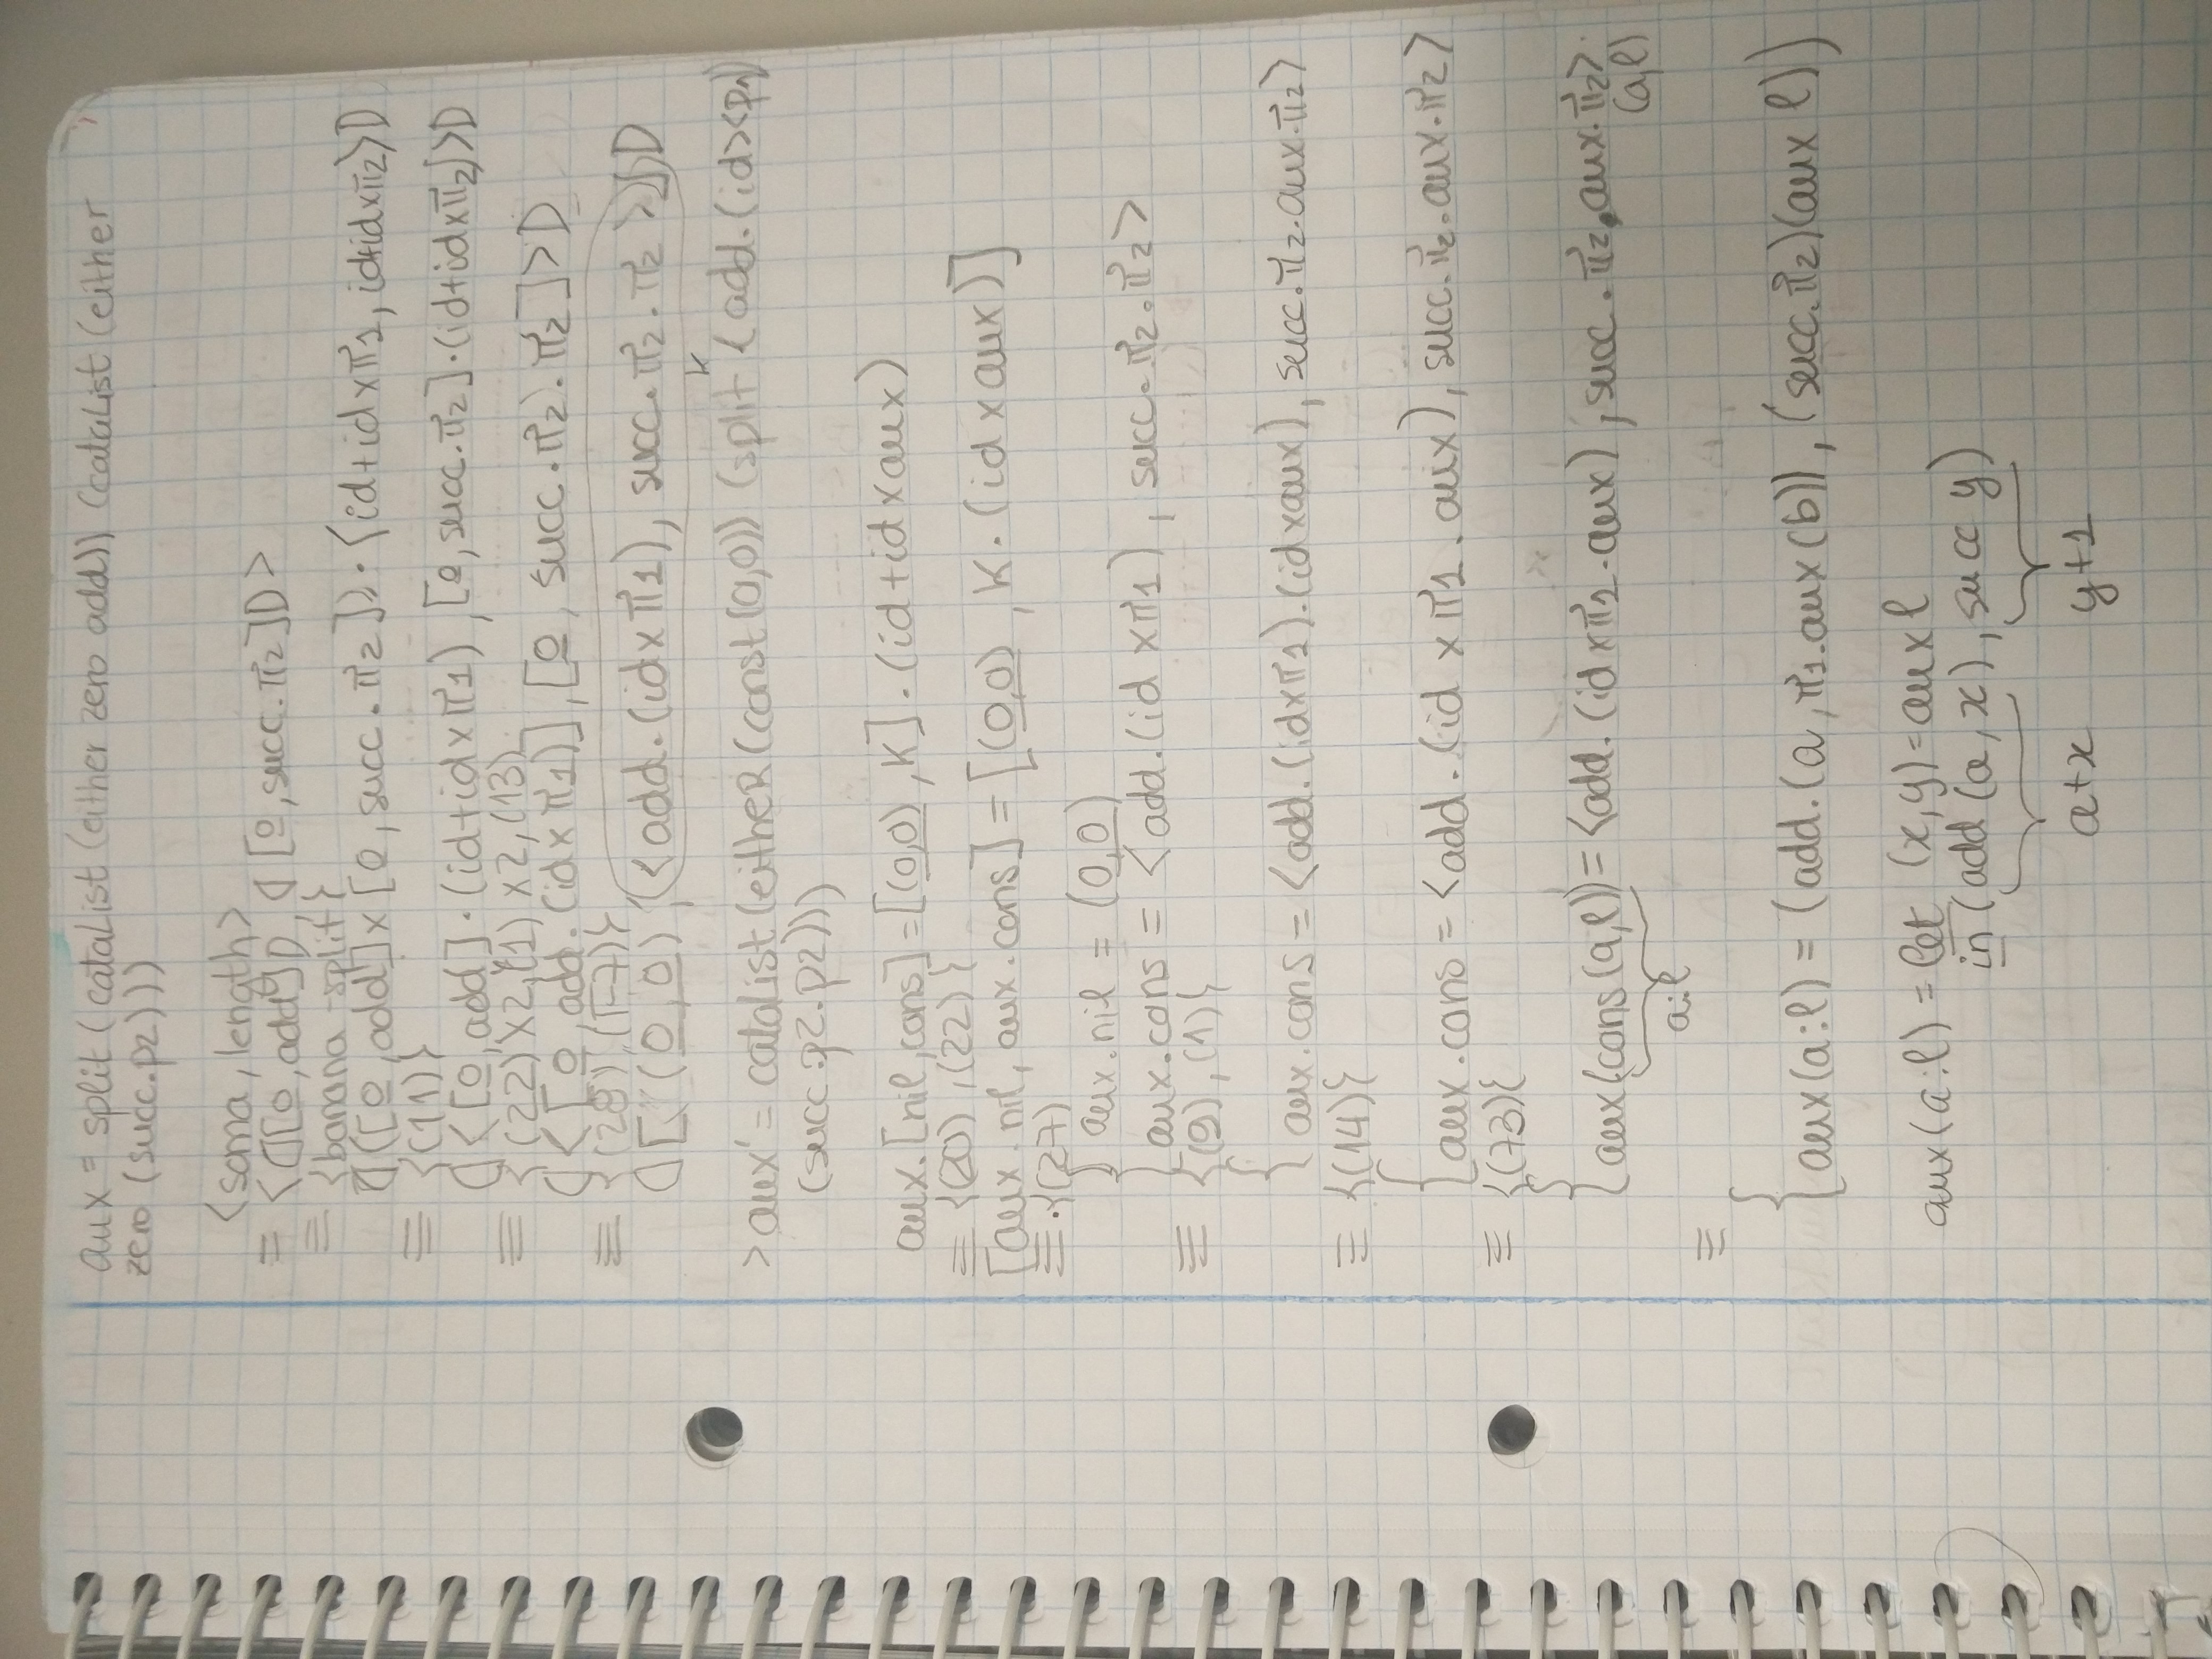 aux = split (cataList (either zero add)) (cataList (either
zero (succ.p2)))
<soma, length>
≡ <⦇[0,add]⦈, ⦇[0,succ.π2]⦈>
≡ {banana-split}
⦇([0,add]×[0,succ.π2])·<id+id×π1, id+id×π2>⦈
≡ {(11)}
⦇<[0,add]·(id+id×π1), [0,succ.π2]·(id+id×π2)>⦈
≡ {(22)×2,(1)×2,(13)
⦇<[0,add.(id×π1)], [0, succ.π2.π2]>⦈
≡ {(28),(F7)}
⦇[(0,0), <add.(id×π1), succ.π2.π2>]⦈
k
> aux' = cataList (either (const(0,0)) (split (add.(id><p1)
(succ.p2.p2)))
aux.[nil,cons]=[(0,0),K].(id+id×aux)
≡ {(20),(22)}
[aux.nil, aux.cons] = [(0,0), K.(id×aux)]
≡ {(27)
{ aux.nil = (0,0)
{ aux.cons = <add.(id×π1), succ.π2.π2>
≡ {(9),(1)}
{ aux.cons = <add.(id×π1).(id×aux), succ.π2.aux.π2>
≡ {(14)}
{ aux.cons = <add.(id×π1.aux), succ.π2.aux.π2>
≡ {(73)}
{ aux(cons(a,l)) = <add.(id×π1.aux), succ.π2.aux.π2>
(a,l)
a:l
≡
{ aux(a:l) = (add.(a,π1.aux(b)), (succ.π2)(aux l))
aux(a:l) = let (x,y)=aux l
in (add (a,x), succ y)
a+x y+1